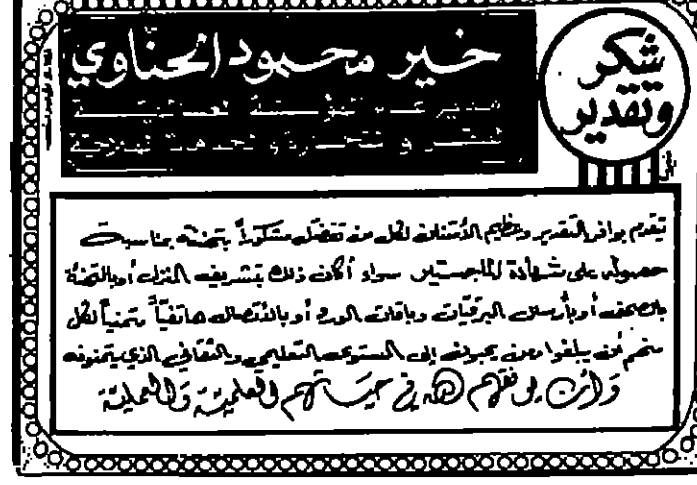 شكر
وتقدير
خير محمود الحناوي
مدير عام المؤسسة العالمية
للنشر و التجارة و الخدمات
يتقدم بوافر التقدير وعظيم الأمتنان لكل من تفضل مشكوراً بتهنئته بمناسبة
حصوله على شهادة الماجستير سواء أكان ذلك بتشريف المنزل أو بالتهنئة
بالصحف أو بأرسال البرقيات وباقات الورد أو بالأتصال هاتفياً متمنياً لكل
منهم أن يبلغوا ومن يحبون إلى المستوى التعليمي والثقافي الذي يتمنونه
وأن يوفقهم الله في حياتهم العلمية والعملية